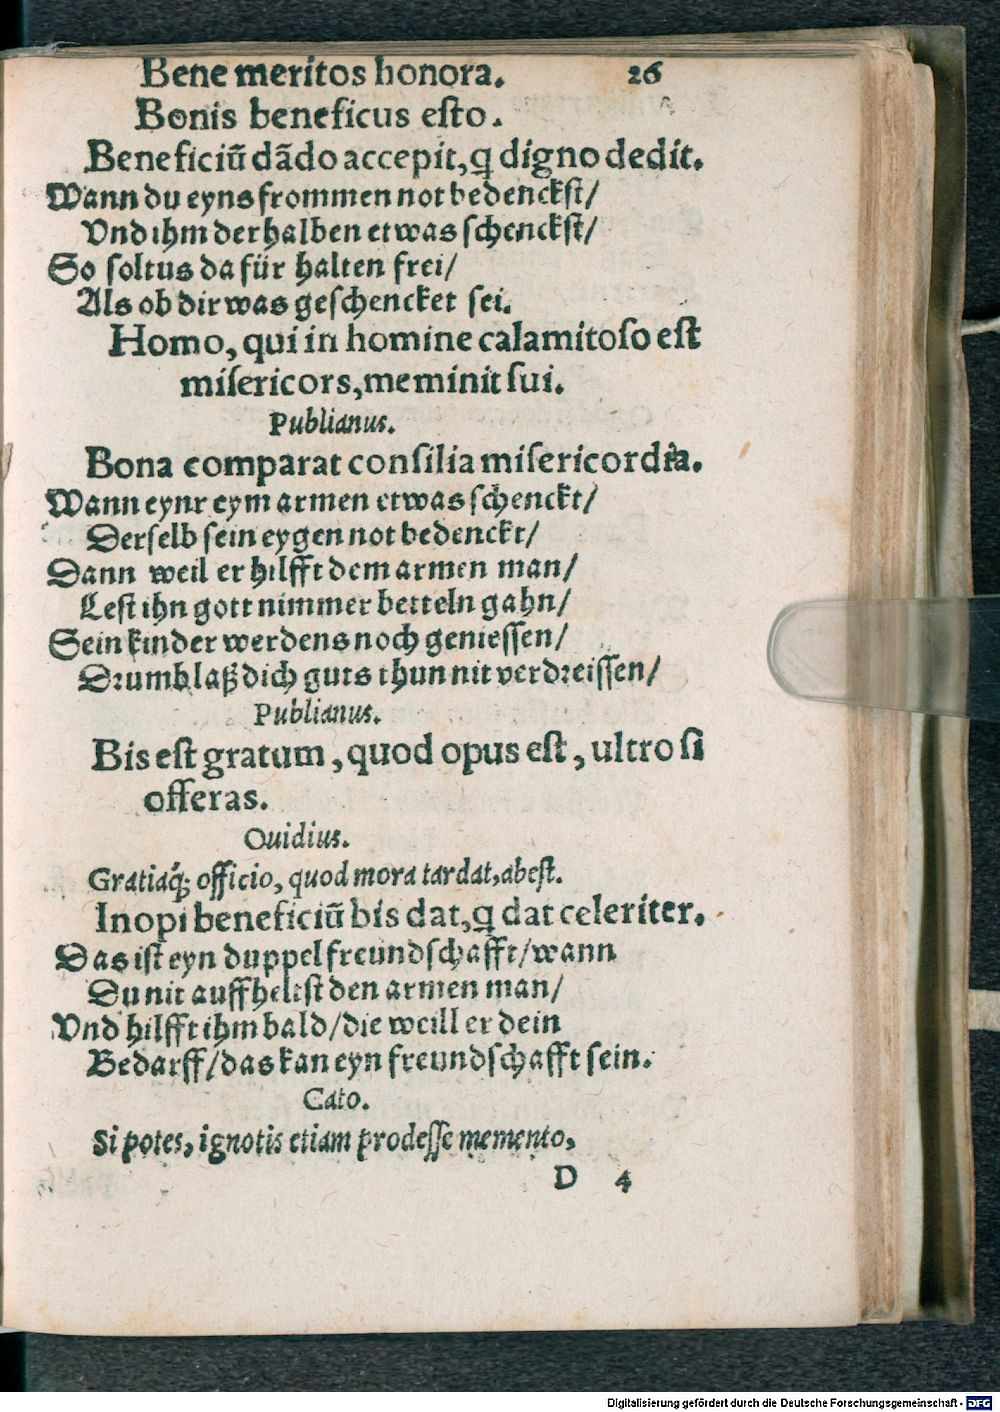 Bene meritos honora. 26
Bonis beneficus esto.
Beneficiũ dãdo accepit, q̃ digno dedit.
Wann du eyns frommen not bedenckst/
Vnd ihm derhalben etwas schenckst/
So soltus da für halten frei/
Als ob dir was geschencket sei.
Homo, qui in homine calamitoso est
misericors, meminit sui.
Publianus.
Bona comparat consilia misericordia.
Wann eynr eym armen etwas schenckt/
Derselb sein eygen not bedenckt/
Dann weil er hilfft dem armen man/
Lest ihn gott nimmer betteln gahn/
Sein kinder werdens noch geniessen/
Drumb laß dich guts thun nit verdreissen/
Publianus.
Bis est gratum, quod opus est, ultro si
offeras.
Ouidius.
Gratiaq́; officio, quod mora tardat, abest.
Inopi beneficiũ bis dat, q̃ dat celeriter.
Das ist eyn duppel freundschafft/wann
Du nit auffheltst den armen man/
Vnd hilfft ihm bald/die weill er dein
Bedarff/das kan eyn freundschafft sein.
Cato.
Si potes, ignotis etiam prodesse memento,
D 4
Digitalisierung gefördert durch die Deutsche Forschungsgemeinschaft - DFG